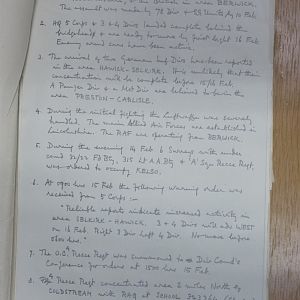 in the British area in area BERWICK.
The assault was made by 72 Div + units by 10 Feb.
2. HQ 5 Corps & 3 + 4 Divs landed complete behind the
bridgehead & are ready to move by first light 16 Feb.
Enemy armd cars have been active.
3. The arrival of two German Inf Divs has been reported
in the area HAWICK-SELKIRK. It is unlikely that their
concentration will be complete before 15/16 Feb.
A Panzer Div & a Mot Div are believed to be in the
area PRESTON - CARLISLE.
4. During the initial fighting the Luftwaffe was severely
handled. The main Allied Air Forces are established in
Lincolnshire. The RAF are operating from BERWICK.
5. During the evening 14 Feb 6 Surreys with under
comd 21/22 Fd Bty, 315 Lt A A Bty & 'A' Sqn Recce Regt
was ordered to occupy KELSO.
6. At 0900 hrs 15 Feb the following warning order was
received from 5 Corps :-
"Reliable reports indicate increased activity in
area SELKIRK - HAWICK. 3 + 4 Divs will adv WEST
on 16 Feb. Right 3 Div Left 4 Div. No move before
0800 hrs."
7. The O.C. Recce Regt was summoned to Div Comd's
Conference for orders at 1500 hrs 15 Feb.
8. The Recce Regt concentrated area 2 miles North of
COLDSTREAM with RHQ at SCHOOL